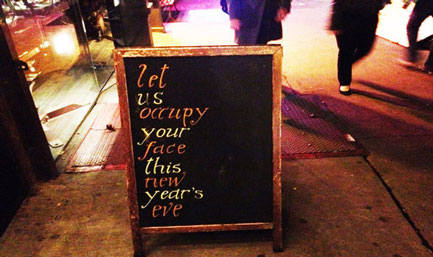 let
us
occupy
your
face
this
new
year's
eve